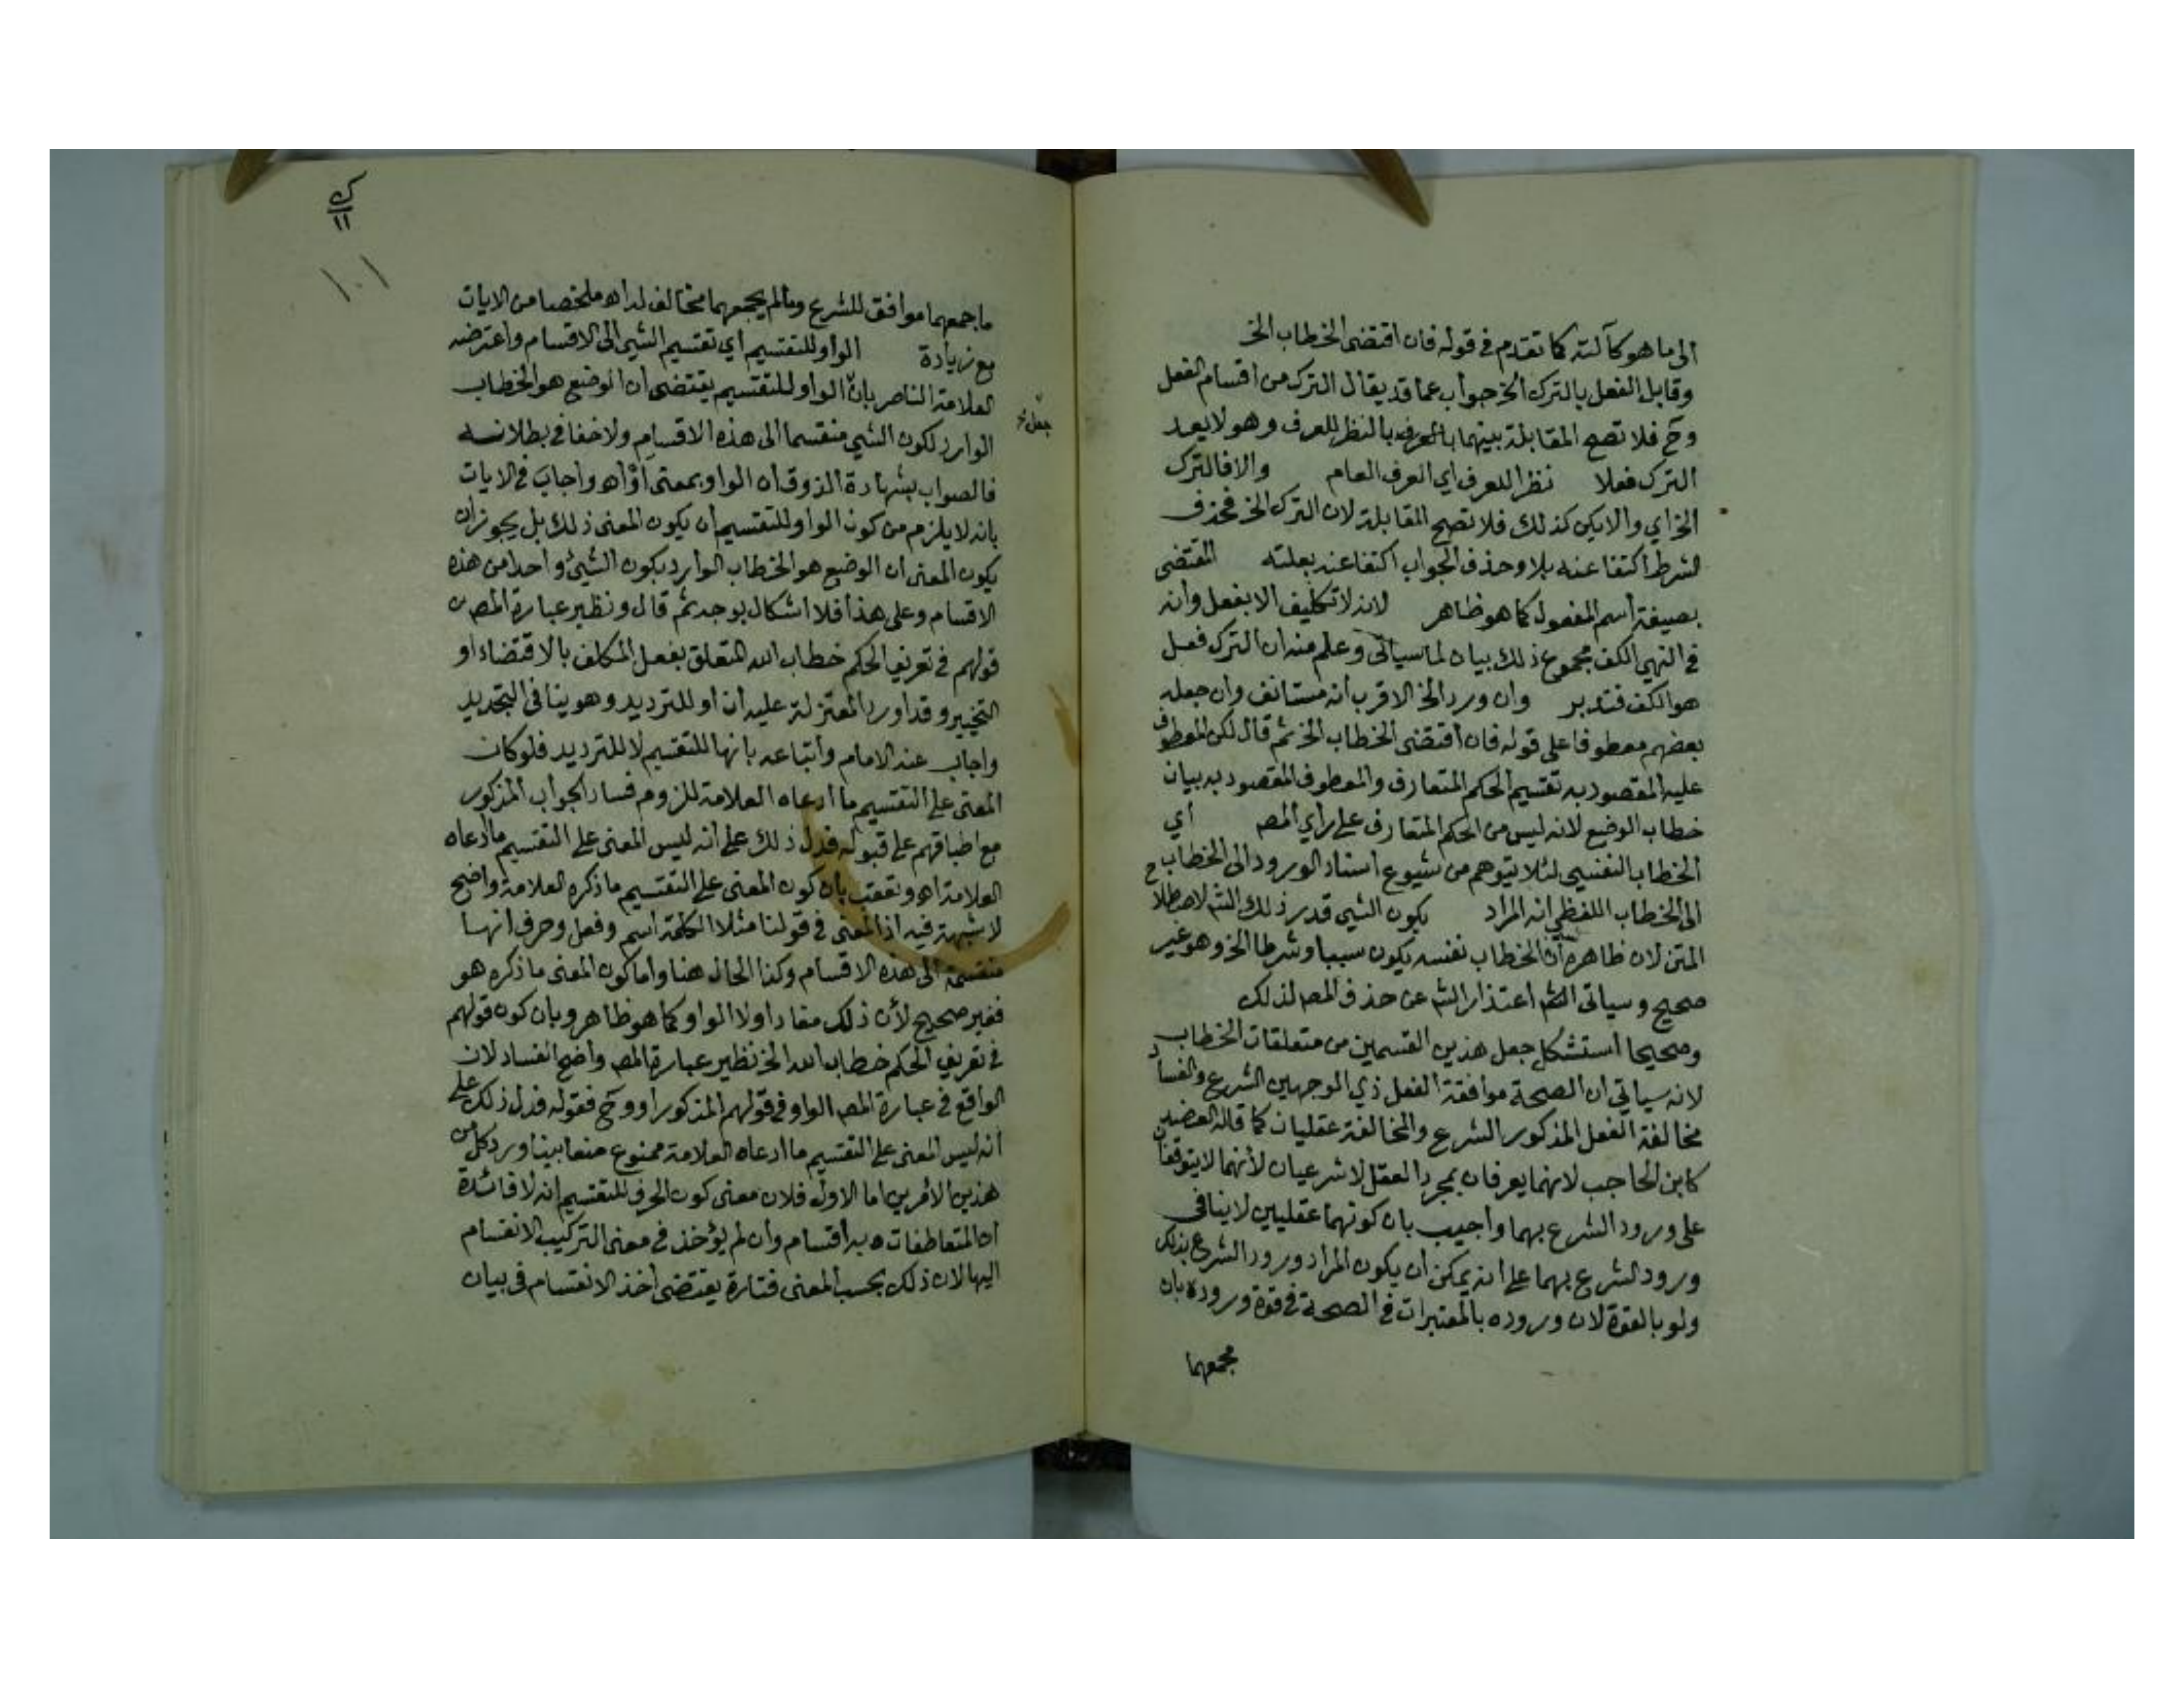 الى ما هو كآلته كما تقدم فى قوله فان اقتضى الخطاب الخ
وقابل الفعل بالترك الخ جواب عما قد يقال الترك من اقسام الفعل
وح فلا تصح المقابلة بينهما بالعرف بالنظر للعرف وهو لا يعد
الترك فعلا نظرا للعرف اي العرف العام والا فالترك
الخ اي والا يكن كذلك فلا تصح المقابلة لان الترك الخ فحذف
لشرط اكتفا عنه بلا وحذف الجواب اكتفا عنه بعلته المقتضى
بصيغة اسم المفعول كما هو ظاهر لانه لا تكليف الا بفعل وانه
في النهي الكف مجموع ذلك بيان لما سياتى وعلم منه ان الترك فعل
هو الكف فتدبر وان ورد الخ الاقرب انه مستانف وان جعله
بعضهم معطوفا على قوله فان اقتضى الخطاب الخ ثم قال لكن المعطوف
عليه المقصود به تقسيم الحكم المتعارف والمعطوف المقصود به بيان
خطاب الوضع لانه ليس من الحكم المتعارف على راي المصه أي
الخطاب النفسي لئلا يتوهم من شيوع اسناد الورود الى الخطاب ح
الى الخطاب اللفظي انه المراد بكون الشي قدر ذلك الشه لاصطلا
المتن لان ظاهره ان الخطاب نفسه يكون سببا وشرطا الخ وهو غير
صحيح وسياتى اعتذار الشه عن حذف المصه لذلك
وصحيحا استشكل جعل هذين القسمين من متعلقات الخطاب
لانه سياتي ان الصحة موافقة الفعل ذي الوجهين الشرع والفساد
مخالفة الفعل المذكور الشرع والمخالفة عقليان كما قاله العضد
كابن الحاجب لانهما يعرفان بمجرد العقل لا شرعيان لأنهما لا يتوقفا
على ورود الشرع بهما واجيب بان كونهما عقليين لا ينافى
ورود الشرع بهما على انه يمكن ان يكون المراد ورود الشرع بذلك
ولو بالقوة لان وروده بالمعتبرات في الصحة في قوة وروده بان
مجمعهما
١٠١
ما جمعهما موافق للشرع وما لم يجمعهما مخالف له اه ملخصا من الايات
مع زيادة الواو للتقسيم اي تقسيم الشي الى الاقسام واعترضه
العلامة الناصر بان الواو للتقسيم يقتضى ان الوضع هو الخطاب
الوارد لكون الشي منقسما الى هذه الاقسام ولا خفا في بطلانه
جعل
فالصواب بشهادة الذوق ان الواو بمعنى أو اه واجاب في الايات
بانه لا يلزم من كون الواو للتقسيم ان يكون المعنى ذلك بل يجوز ان
يكون المعنى ان الوضع هو الخطاب الوارد بكون الشيئ واحدا من هذه
الاقسام وعلى هذا فلا اشكال بوجه ثم قال ونظير عبارة المصه
قولهم في تعريف الحكم خطاب الله المتعلق بفعل المكلف بالاقتضاء او
التخيير وقد اورد المعتزلة عليه ان او للترديد وهو ينافى التحديد
واجاب عنه الامام واتباعه بانها للتقسيم لا للترديد فلو كان
المعنى على التقسيم ما ادعاه العلامة للزوم فساد الجواب المذكور
مع اطباقهم على قبوله فدل ذلك على انه ليس المعنى على التقسيم ما ادعاه
العلامة اه وتعقب بان كون المعنى على التقسيم ما ذكره العلامة واضح
لا شبهة فيه اذ المعنى في قولنا مثلا الكلمة اسم وفعل وحرف انها
منقسمة الى هذه الاقسام وكذا الحال هنا واما كون المعنى ما ذكره هو
فغير صحيح لأن ذلك مفاد او لا الواو كما هو ظاهر وبان كون قولهم
في تعريف الحكم خطاب الله الخ نظير عبارة المصه واضح الفساد لان
الواقع في عبارة المصه الواو وفي قولهم المذكور او وح فقوله فدل ذلك على
انه ليس المعنى على التقسيم ما ادعاه العلامة ممنوع منعا بينا ورد كل من
هذين الامرين اما الاول فلان معنى كون الحرف للتقسيم انه لا فائدة
ان المتعاطفات به اقسام وان لم يؤخذ في معنى التركيب الانقسام
اليها لان ذلك بحسب المعنى فتارة يقتضى اخذ الانقسام فى بيان